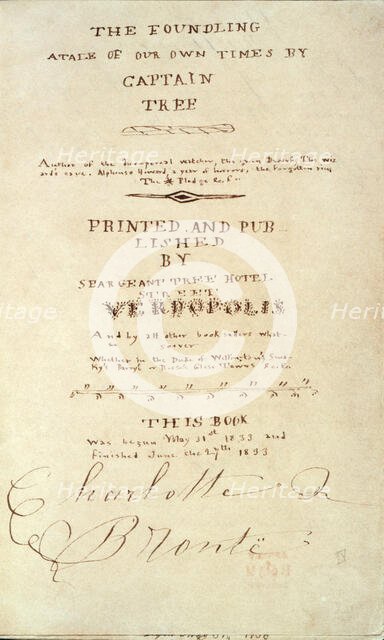 THE FOUNDLING
A TALE OF OUR OWN TIMES BY
CAPTAIN
TREE
Author of the the green Dwarf, The wiz
ards cave. Alphonso Howard, a year of horrors, the forgotten ring
The Pledge &c &c
PRINTED AND PUB
LISHED
BY
SEARGEANT TREE HOTEL
STREET
VERDOPOLIS
And by all other book sellers what-
soever
Whether in the Duke of Wellington's
Parry's or Ross's Glass Towns &c &c
THIS BOOK
Was begun May 31st 1833 and
Finished June the 27th 1833
Charlotte
Brontë
Heritage Images
Heritage Images
Heritage Images